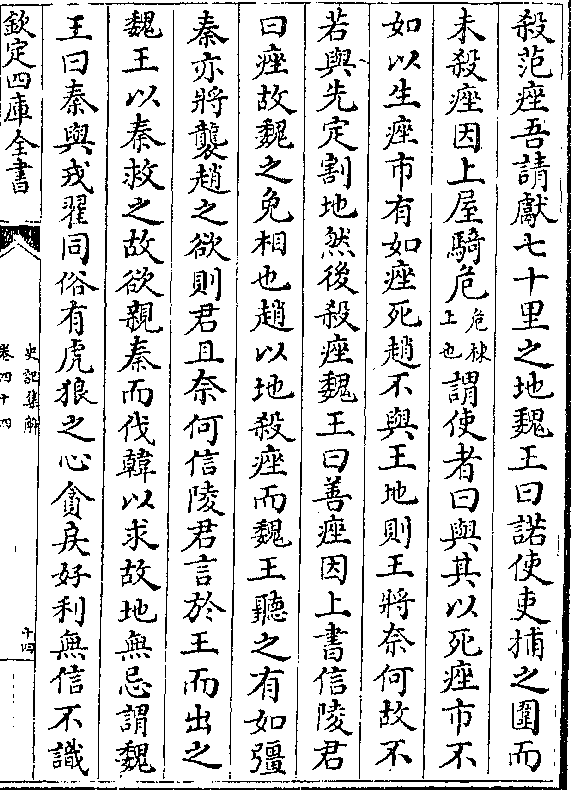 殺范痤吾請獻七十里之地魏王曰諾使吏捕之圍而
未殺痤因上屋騎危危棟上也謂使者曰與其以死痤市不
如以生痤市有如痤死趙不與王地則王將奈何故不
若與先定割地然後殺痤魏王曰善痤因上書信陵君
曰痤故魏之免相也趙以地殺痤而魏王聽之有如彊
秦亦將襲趙之欲則君且奈何信陵君言於王而出之
魏王以秦救之故欲親秦而伐韓以求故地無忌謂魏
王曰秦與戎翟同俗有虎狼之心貪戾好利無信不識
欽定四庫全書
史記集解
卷四十四
十四